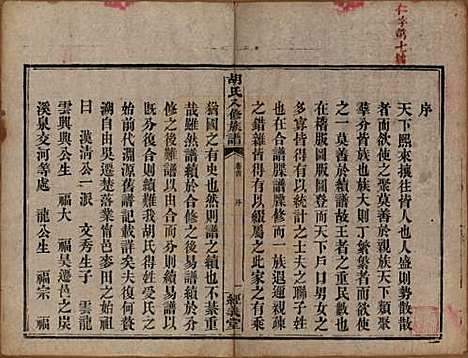 仁字第十號
序
天下熙來攘往皆人也人盛則勢散散
者而欲使之聚莫善於族天下類聚
羣分皆族也族大則丁繁繁者而欲使
之一莫善於續譜故王者之重民數也
有版圖版圖定天下戶口男女之
之錯雜皆得有以統計之士夫之聯子姓
也在合譜牒譜牒修而一族遐邇視疎
之錯雜皆得有以綴屬之此家之有乘
胡氏八修族譜
卷首
序
一
經義堂
猶國之有史也然譜之續也不綦重
哉雖然譜續於可續之後易續譜
修之後難譜以由合而分而易譜以
由分求合則續難我胡氏得姓
始前代淵源舊譜記詳矣夫復何
說溯自吳遷楚落業甯邑麥田之祖
曰漢清公一派文秀生子雲龍
雲興興公生福大福吳遷邑之炭
溪泉交河等處龍公生福宗福